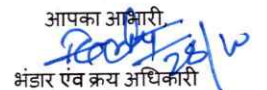 आपका आभारी,
28/10
भंडार एंव क्रय अधिकारी